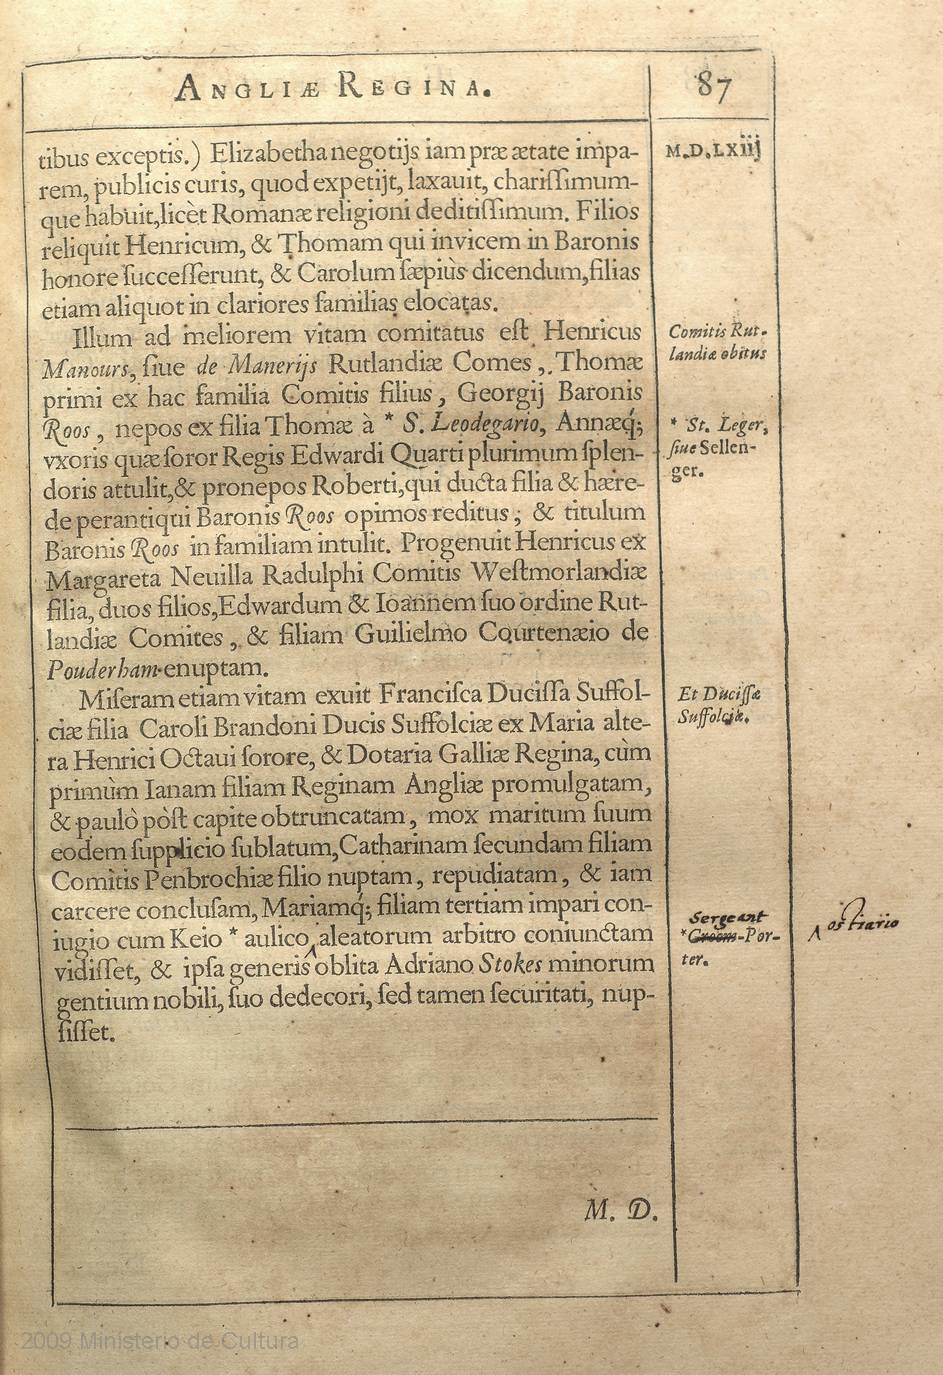 ANGLIÆ REGINA.
87
M.D.LXiij
tibus exceptis.) Elizabetha negotijs iam præ ætate impa-
rem, publicis curis, quod expetijt, laxauit, chariſſimum-
que habuit, licèt Romanæ religioni deditiſſimum. Filios
reliquit Henricum, & Thomam qui invicem in Baronis
honore ſucceſſerunt, & Carolum ſæpiùs dicendum, filias
etiam aliquot in clariores familias elocatas.
Illum ad meliorem vitam comitatus eſt Henricus
Manours, ſiue de Manerijs Rutlandiæ Comes, Thomæ
primi ex hac familia Comitis filius, Georgij Baronis
Roos, nepos ex filia Thomæ à * S. Leodegario, Annæq́;
vxoris quæ ſoror Regis Edwardi Quarti plurimum ſplen-
doris attulit, & pronepos Roberti, qui ducta filia & hære-
de perantiqui Baronis Roos opimos reditus; & titulum
Baronis Roos in familiam intulit. Progenuit Henricus ex
Margareta Neuilla Radulphi Comitis Weſtmorlandiæ
filia, duos filios, Edwardum & Ioannem ſuo ordine Rut-
landiæ Comites, & filiam Guilielmo Courtenæio de
Pouderham enuptam.
Miſeram etiam vitam exuit Franciſca Duciſſa Suffol-
ciæ filia Caroli Brandoni Ducis Suffolciæ ex Maria alte-
ra Henrici Octaui ſorore, & Dotaria Galliæ Regina, cùm
primùm Ianam filiam Reginam Angliæ promulgatam,
& paulò pòſt capite obtruncatam, mox maritum ſuum
eodem ſupplicio ſublatum, Catharinam ſecundam filiam
Comitis Penbrochiæ filio nuptam, repudiatam, & iam
carcere concluſam, Mariamq́; filiam tertiam impari con-
iugio cum Keio * aulico aleatorum arbitro coniunctam
vidiſſet, & ipſa generis oblita Adriano Stokes minorum
gentium nobili, ſuo dedecori, ſed tamen ſecuritati, nup-
ſiſſet.
Comitis Rut-
landiæ obitus
* St. Leger,
ſiue Sellen-
ger.
Et Duciſſæ
Suffolciæ.
Sergeant
*Groom-Por-
ter.
ostiario
M. D.
2009 Ministerio de Cultura